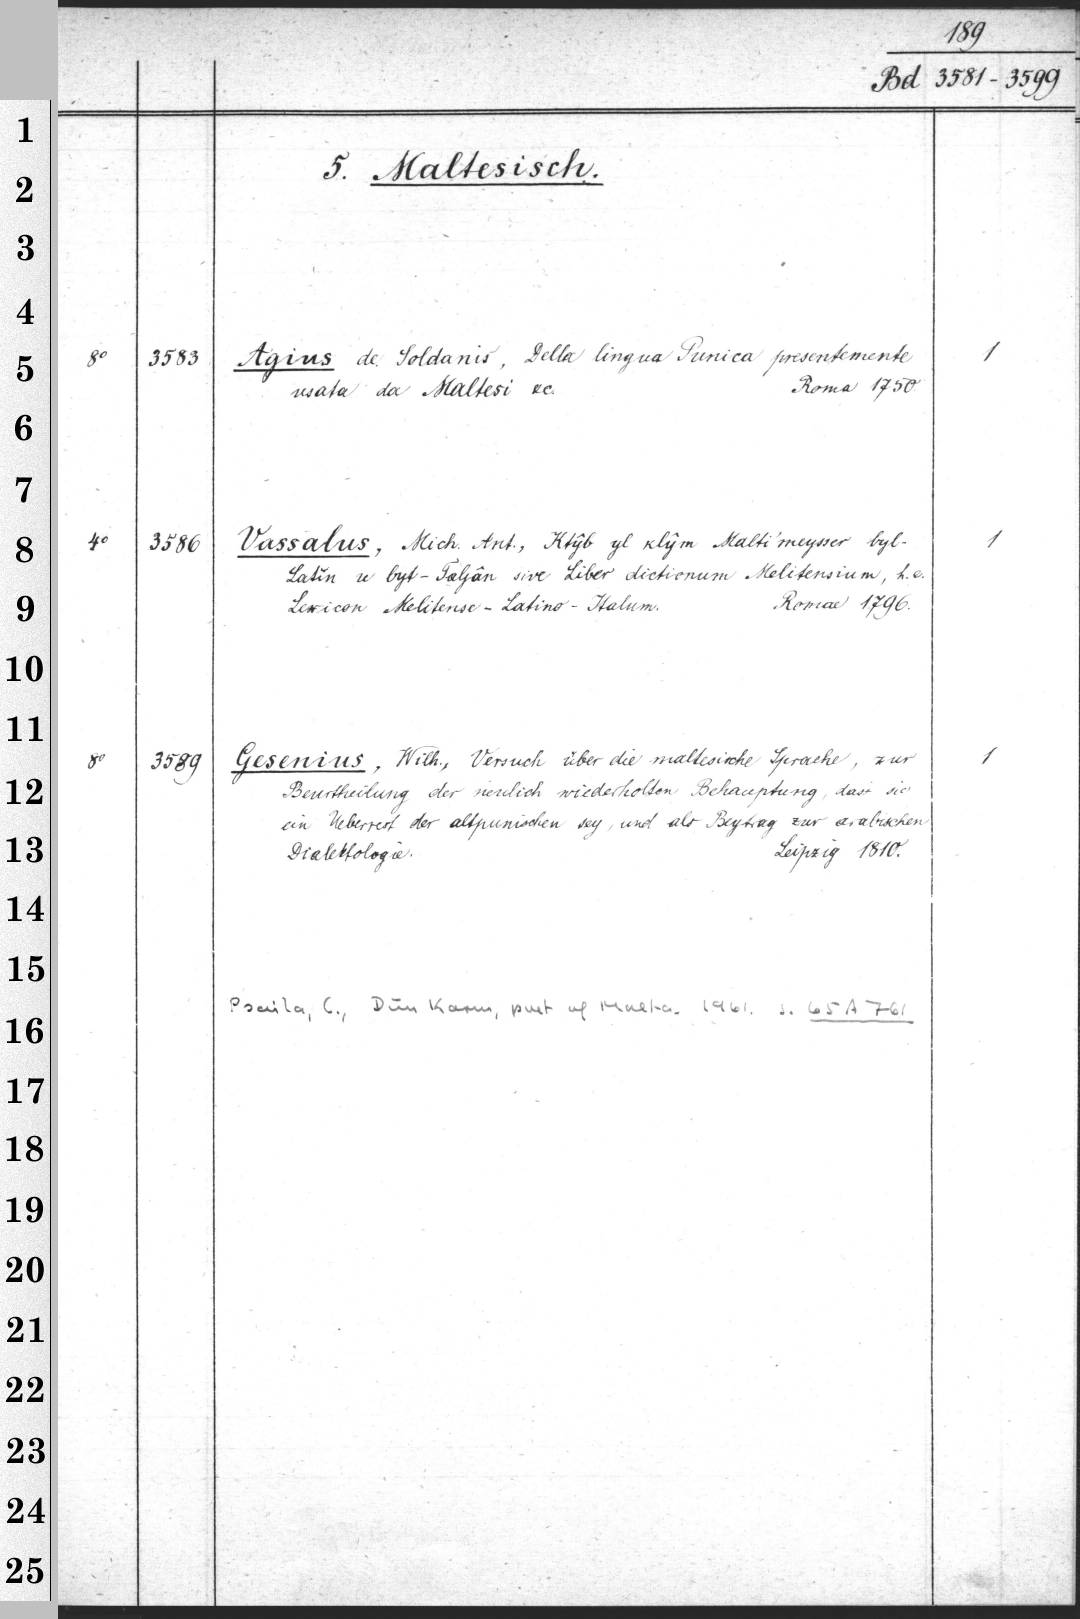 189
Bd 3581-3599
5. Maltesisch.
8° 3583 Agius de Soldanis, Della lingua Punica presentemente 1
usata da Maltesi &c. Roma 1750
4° 3586 Vassalus, Mich. Ant., Ktŷb yl klŷm Malti'meysser byl- 1
Latîn u byt-Taljân sive Liber dictionum Melitensium, h. e.
Lexicon Melitense-Latino-Italum. Romae 1796.
8° 3589 Gesenius, Wilh., Versuch über die maltesische Sprache, zur 1
Beurtheilung der neulich wiederholten Behauptung, dass sie
ein Ueberrest der altpunischen sey, und als Beytrag zur arabischen
Dialektologie. Leipzig 1810.
Psaila, C., Dun Karm, poet of Malta. 1961. s. 65 A 761
1
2
3
4
5
6
7
8
9
10
11
12
13
14
15
16
17
18
19
20
21
22
23
24
25